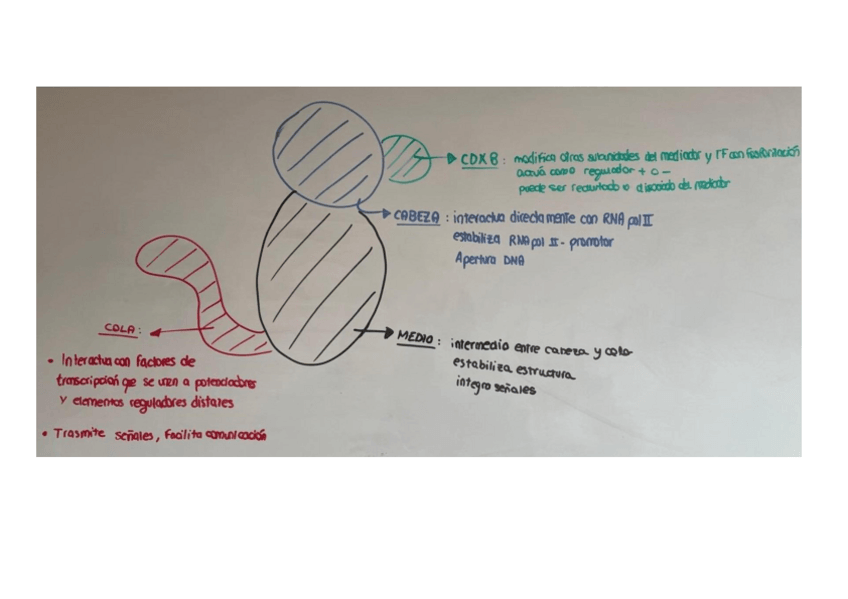 CDK8: modifica otras subunidades del mediador y TF con fosforilación
actúa como regulador + o -
puede ser reclutado o disociado del mediador
CABEZA: interactua directamente con RNA pol II
estabiliza RNA pol II - promotor
Apertura DNA
MEDIO: intermedio entre cabeza y cola
estabiliza estructura
integra señales
COLA:
• Interactua con factores de
transcripción que se unen a potenciadores
y elementos reguladores distales
• Trasmite señales, facilita comunicación